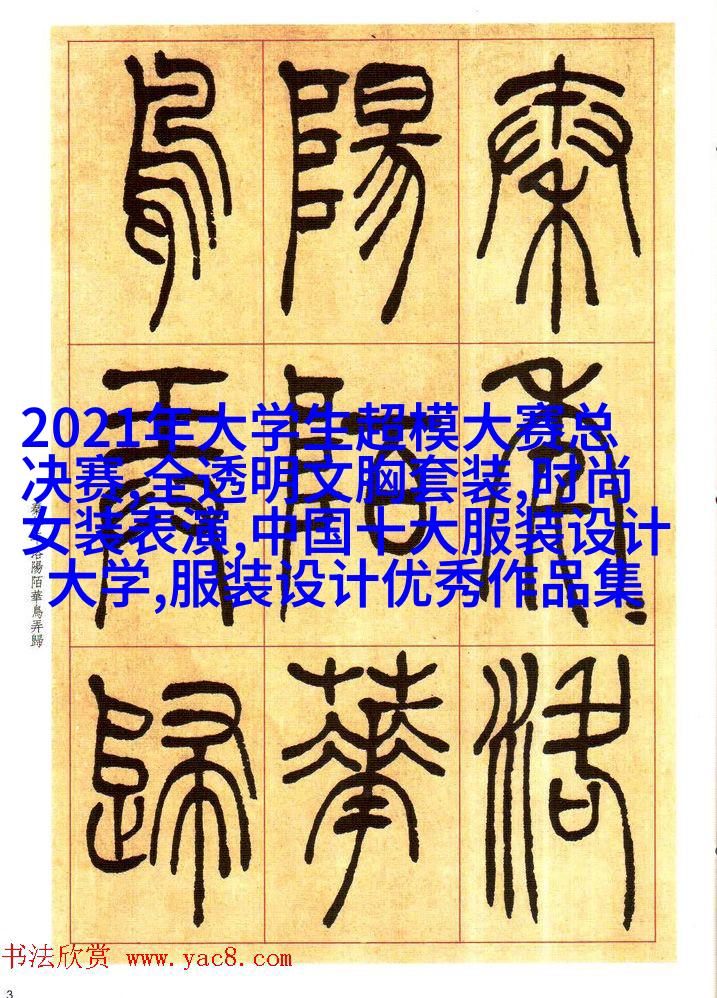 秦洛
陽陌華
鳥弄歸
2021年大学生超模大赛总
决赛,全透明文胸套装,时尚
女装表演,中国十大服装设计
大学,服装设计优秀作品集
秦洛陽陌華鳥弄歸
书法欣赏 www.yac8.com
3